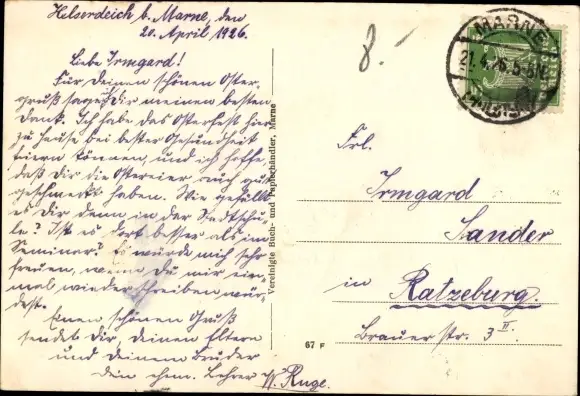 Helserdeich b. Marne, den
20. April 1926.
Liebe Irmgard!
Für Deinen schönen Oster-
gruß sage Dir meinen besten
Dank. Ich habe das Osterfest hier
zu Hause bei bester Gesundheit
feiern können, und ich hoffe,
daß Dir die Ostereier auch gut
geschmeckt haben. Wie gefällt
es Dir denn in der Stadtschu-
le? Ist es dort besser als im
Seminar? Es würde mich sehr
freuen, wenn Du mir ein-
mal wieder schreiben wür-
dest.
Einen schönen Gruß
sendet Dir, Deinen Eltern
und Deinem Bruder
Dein ehem. Lehrer W. Ruge.
Vereinigte Buch- und Papierhändler, Marne
8.
MARNE
21.4.26. 5-6N
(HOLSTEIN)
Frl.
Irmgard
Sander
in
Ratzeburg.
Brauerstr. 3 II.
67 F